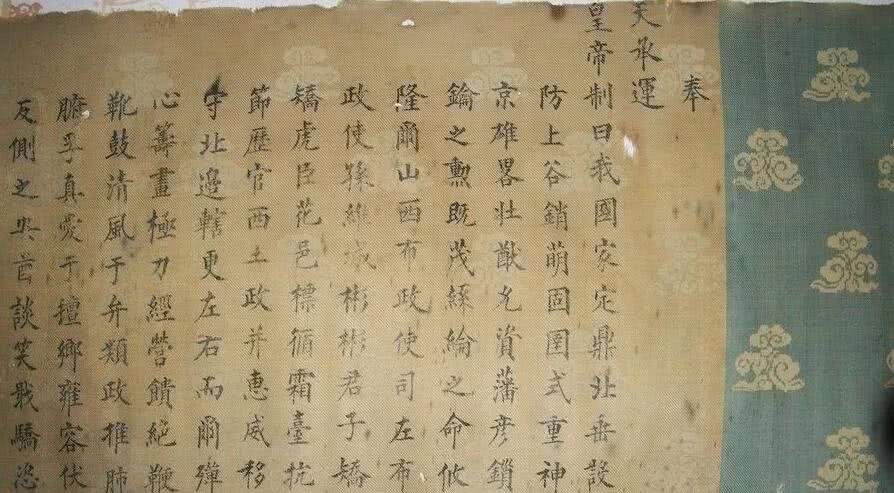 奉
天承運
皇帝制曰我國家定鼎北垂設
防上谷銷萌固圉式重神
京雄畧壮猷允資藩彥鎖
鑰之勲既茂絲綸之命攸
隆爾山西布政使司左布
政使孫維城彬彬君子矯
矯虎臣花邑標循霜臺抗
節歷官西土政并惠威移
守北邉轄更左右而爾殫
心籌畫極力經營饋絕鞭
靴鼓清風于弁類政推肺
腑孚真愛于擅鄉雍容伏
反側之酋談笑戢驕恣